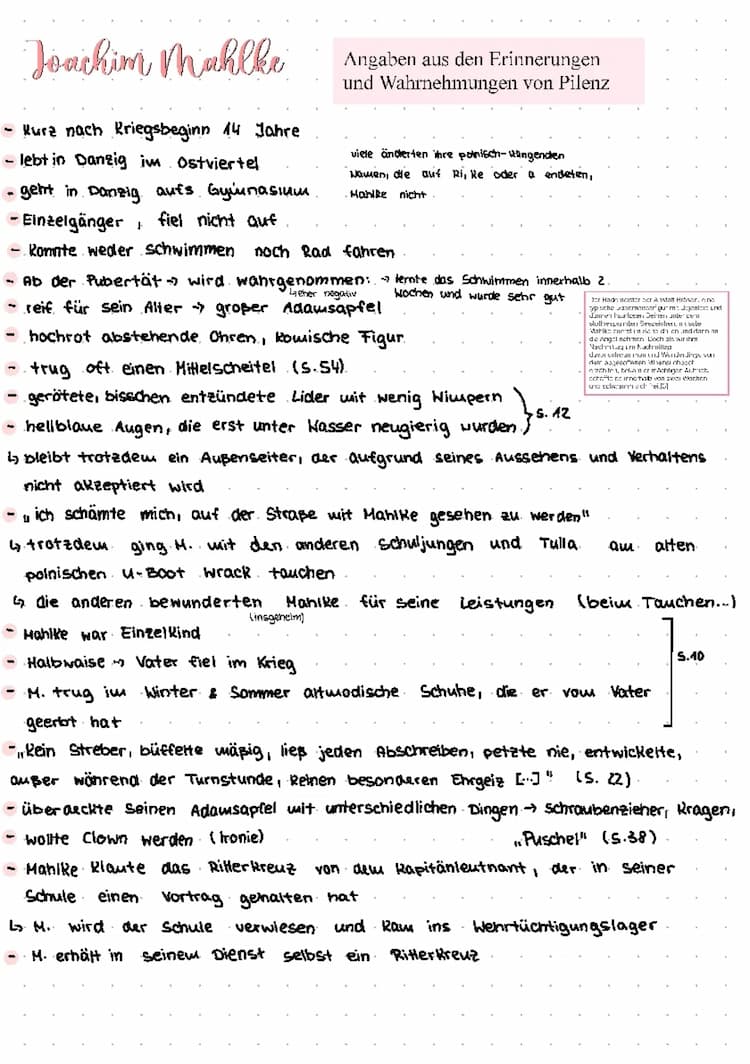 Joachim Mahlke
Angaben aus den Erinnerungen
und Wahrnehmungen von Pilenz
- kurz nach Kriegsbeginn 14 Jahre
- lebt in Danzig im Ostviertel
- geht in Danzig aufs Gymnasium
viele änderten ihre polnisch-klingenden
Namen, die auf Ki, Ke oder a endeten,
Mahlke nicht
- Einzelgänger, fiel nicht auf
- konnte weder schwimmen noch Rad fahren
- Ab der Pubertät → wird wahrgenommen: → lernte das Schwimmen innerhalb 2
↳ eher negativ
Wochen und wurde sehr gut
- reif für sein Alter → großer Adamsapfel
- hochrot abstehende Ohren, komische Figur
- trug oft einen Mittelscheitel (S.54)
- gerötete, bisschen entzündete Lider mit wenig Wimpern
- hellblaue Augen, die erst unter Wasser neugierig wurden
S. 12
↳ bleibt trotzdem ein Außenseiter, der aufgrund seines Aussehens und Verhaltens
nicht akzeptiert wird
- „ich schämte mich, auf der Straße mit Mahlke gesehen zu werden"
↳ trotzdem ging M. mit den anderen Schuljungen und Tulla am alten
polnischen U-Boot Wrack tauchen
↳ die anderen bewunderten Mahlke für seine Leistungen (beim Tauchen...)
(insgeheim)
- Mahlke war Einzelkind
- Halbwaise → Vater fiel im Krieg
S.10
- M. trug im Winter & Sommer altmodische Schuhe, die er vom Vater
geerbt hat
- „Kein Streber, büffelte mäßig, ließ jeden Abschreiben, petzte nie, entwickelte,
außer während der Turnstunde, keinen besonderen Ehrgeiz [..]" (S. 22)
- überdeckte seinen Adamsapfel mit unterschiedlichen Dingen → Schraubenzieher, Kragen,
- wollte Clown werden (Ironie)
„Puschel" (S.38)
- Mahlke klaute das Ritterkreuz von dem Kapitänleutnant, der in seiner
Schule einen Vortrag gehalten hat
↳ M. wird der Schule verwiesen und kam ins Wehrtüchtigungslager
- M. erhält in seinem Dienst selbst ein Ritterkreuz